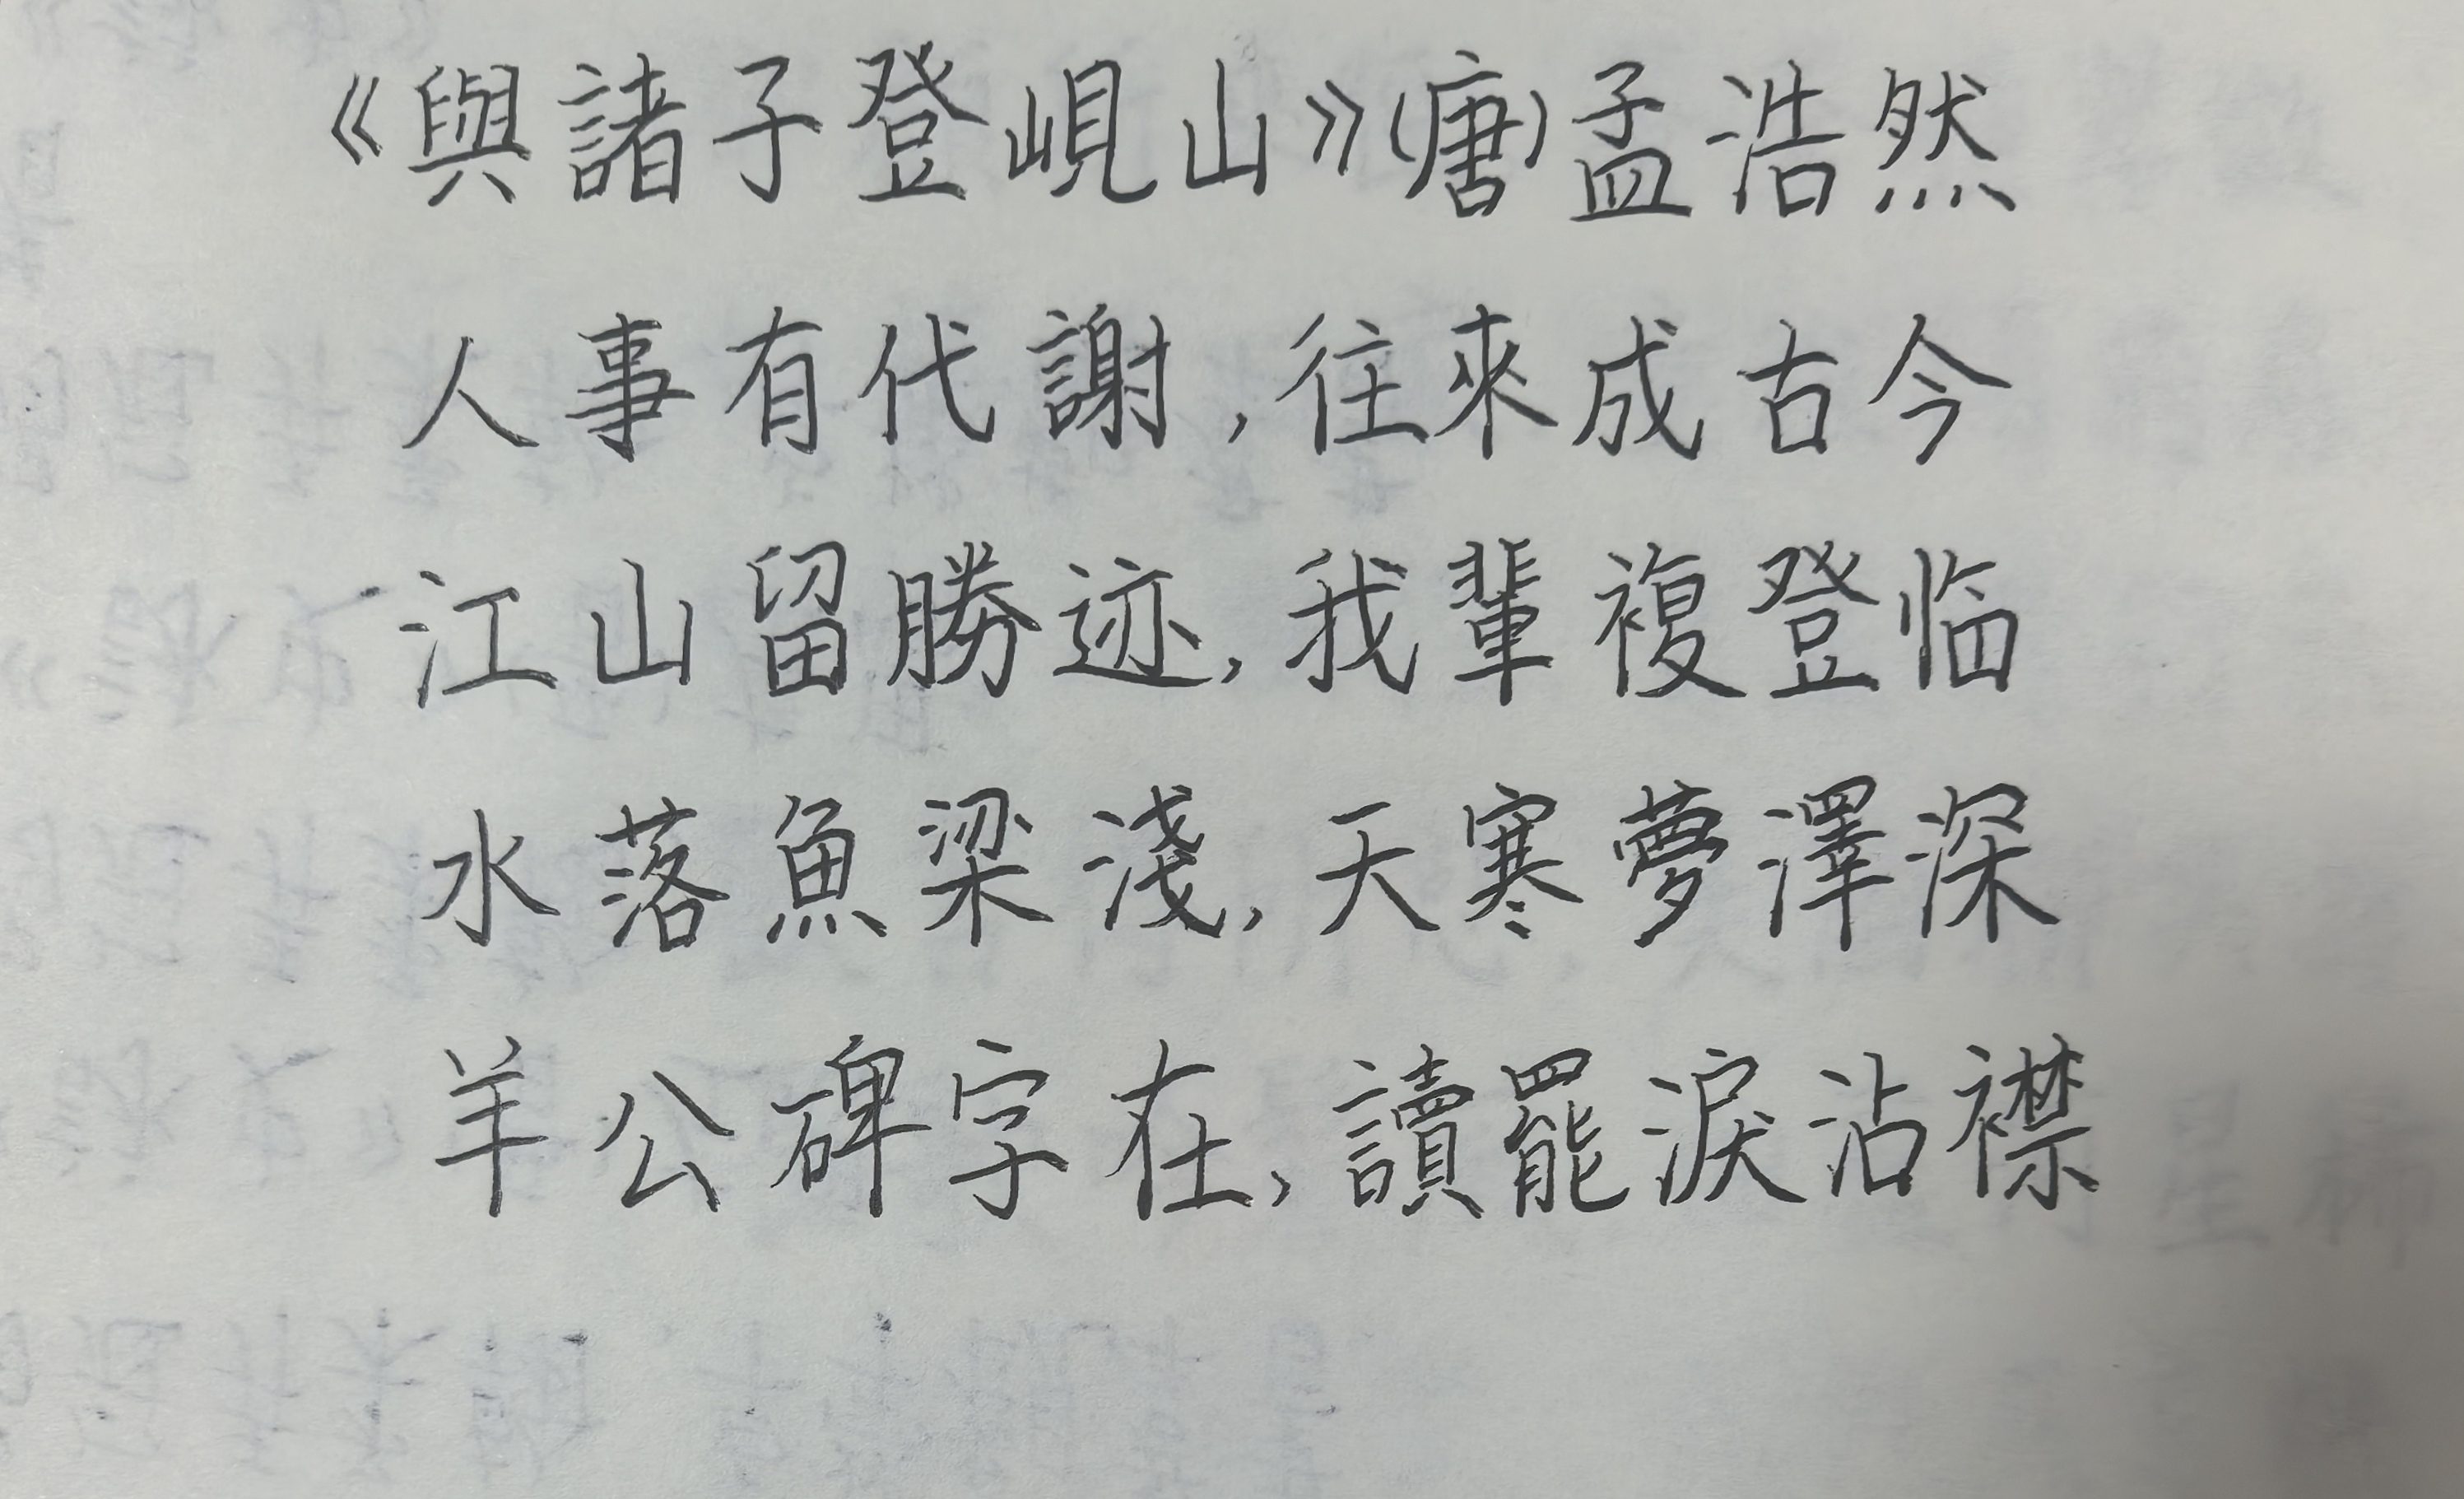 《與諸子登峴山》(唐)孟浩然
人事有代謝,往來成古今
江山留勝迹,我輩複登临
水落魚梁淺,天寒夢澤深
羊公碑字在,讀罷淚沾襟